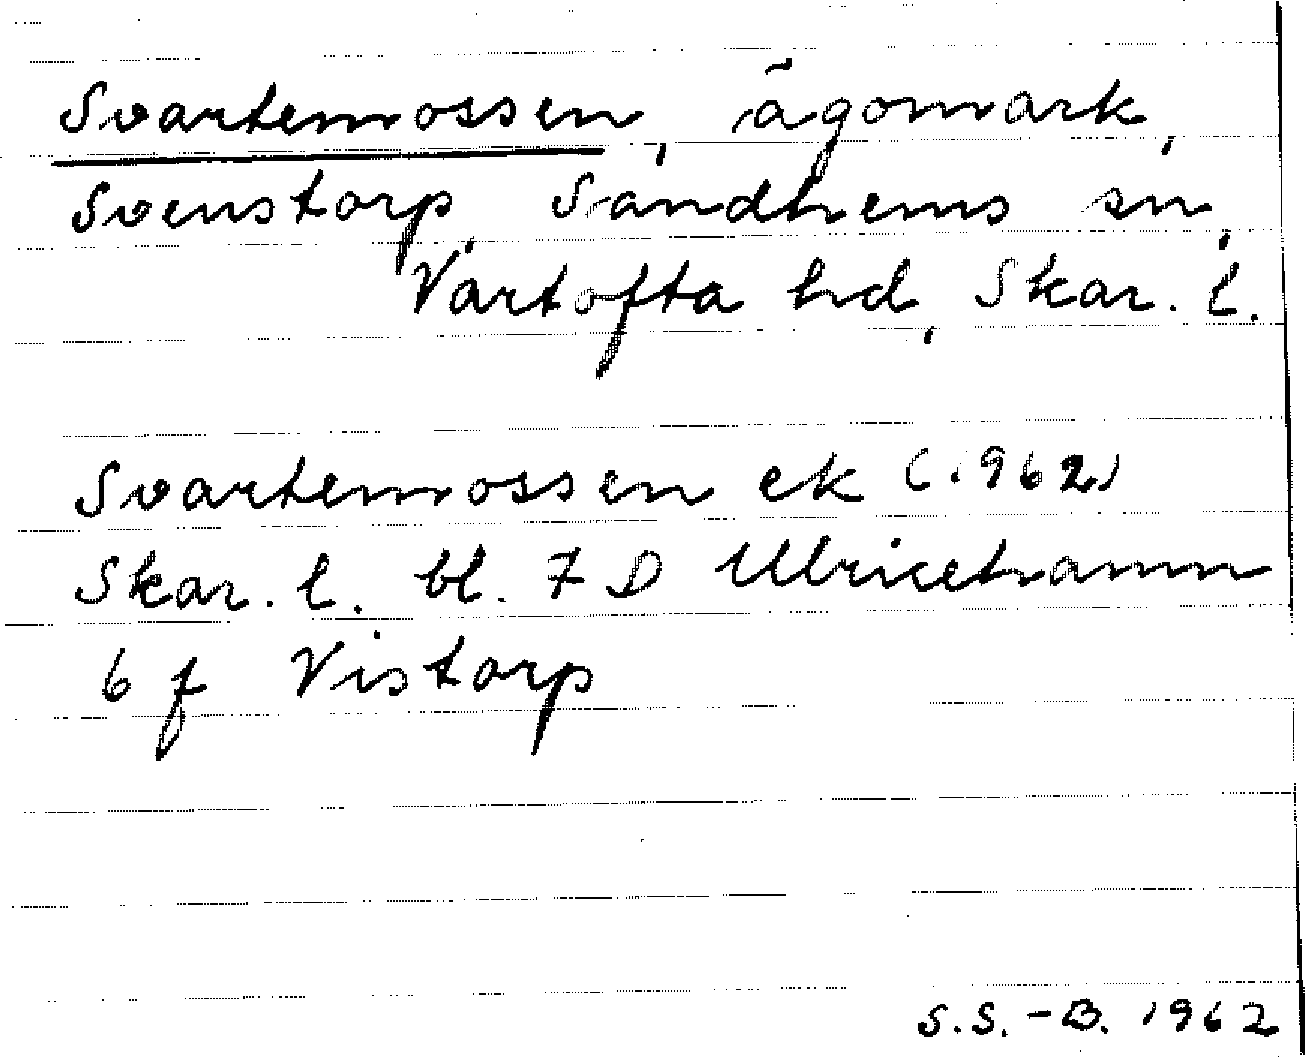 Svartemossen, ägomark,
Svenstorp, Sandhems sn,
Vartofta hd, Skar. l.
Svartemossen ek (1962)
Skar. l. bl. 7 D Ulricehamn
6 f Vistorp
S.S.-B. 1962